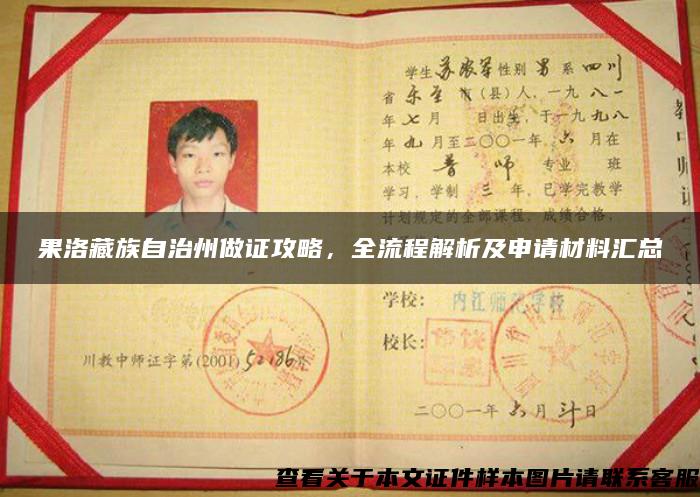 学生 苏 军 性别 男 系 四川
省 乐至 市（县）人，一九 八一
年 七 月 日出生，于一九 九八
年 九 月至二〇〇一年 六 月在
本校 普师 专业 班
学习，学制 三 年，已学完教学
计划规定的全部课程，成绩合格，
果洛藏族自治州做证攻略，全流程解析及申请材料汇总
学校： 内江师范学校
校长：
川教中师证字第(2001) 52186 号
二〇〇一年 六 月 日
查看关于本文证件样本图片请联系客服